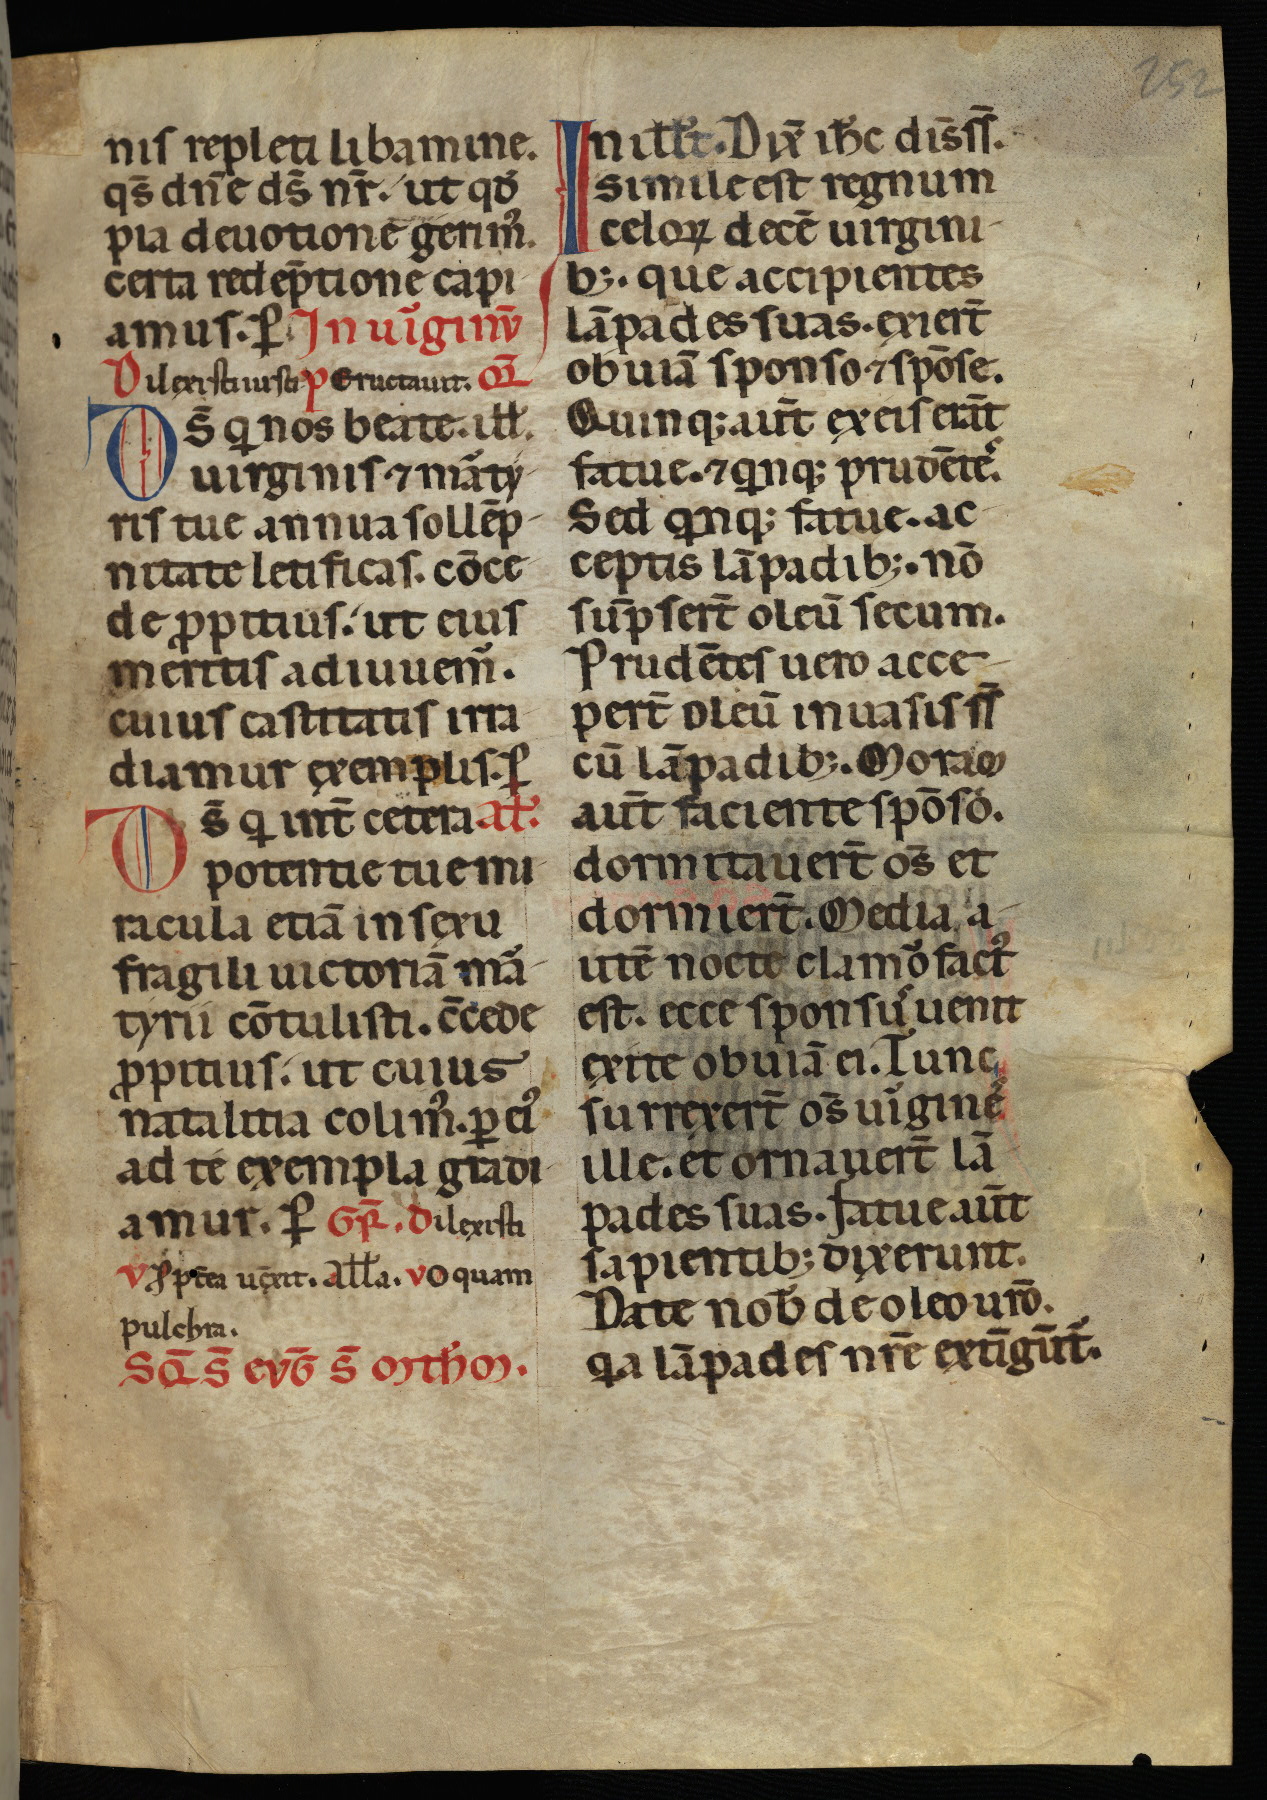 252
nis repleti libamine.
qs̄ dn̄e ds̄ nr̄. ut qd̕
pia deuotione gerim᷒.
certa redēptione capi
amus. ꝑ. In uiginū
Dilexisti iusti. P Eructauit. or̄
DS̄ qi nos beate. ill̄.
uirginis ⁊ māty
ris tue annua sollēp
nitate letificas. cōce
de ꝓpitius. ut eius
meritis adiuuem᷒.
cuius castitatis irra
diamur exemplis. ꝑ
Ds̄ qi int̄ cetera al̄.
potentie tue mi
racula etiā in sexu
fragili uictoriā mā
tyrii cōtulisti. c̄cede
ꝓpitius. ut cuius
natalitia colim᷒. ꝑ ei᷒
ad te exempla gradi
amur. ꝑ Gr̄. Dilexisti
V Ꝓpt̄ea uc̄xit. All̄a. V O quam
pulchra.
Sq̄ s̄ euḡ s̄ Mth̄m.
In ill̄t. Dix̄ ih̄c dis̄ ss̄.
simile est regnum
celoꝝ decē uirgini
bꝫ. que accipientes
lāpades suas. exiert̄
obuiā sponso ⁊ spōse.
Quinqꝫ aut̄ ex eis erāt
fatue. ⁊ qinqꝫ prudēte᷒.
Sed qinqꝫ fatue. ac
ceptis lāpadibꝫ. nō
sūpsert̄ oleū secum.
Prudētes uero acce
pert̄ oleū in uasis ss̄
cū lāpadibꝫ. Mora
aut̄ faciente spōso.
dormitauert̄ os̄ et
dormiert̄. Media a
utē nocte clamo᷒ fact᷒
est. ecce sponsu᷒ uenit
exite obuiā ei. Tunc
surrexert̄ os̄ uigine᷒
ille. et ornauert̄ lā
pades suas. Fatue aūt
sapientibꝫ dixerunt.
Date nob̄ de oleo ur̄o.
qa lāpades nr̄e extīgūt᷑.